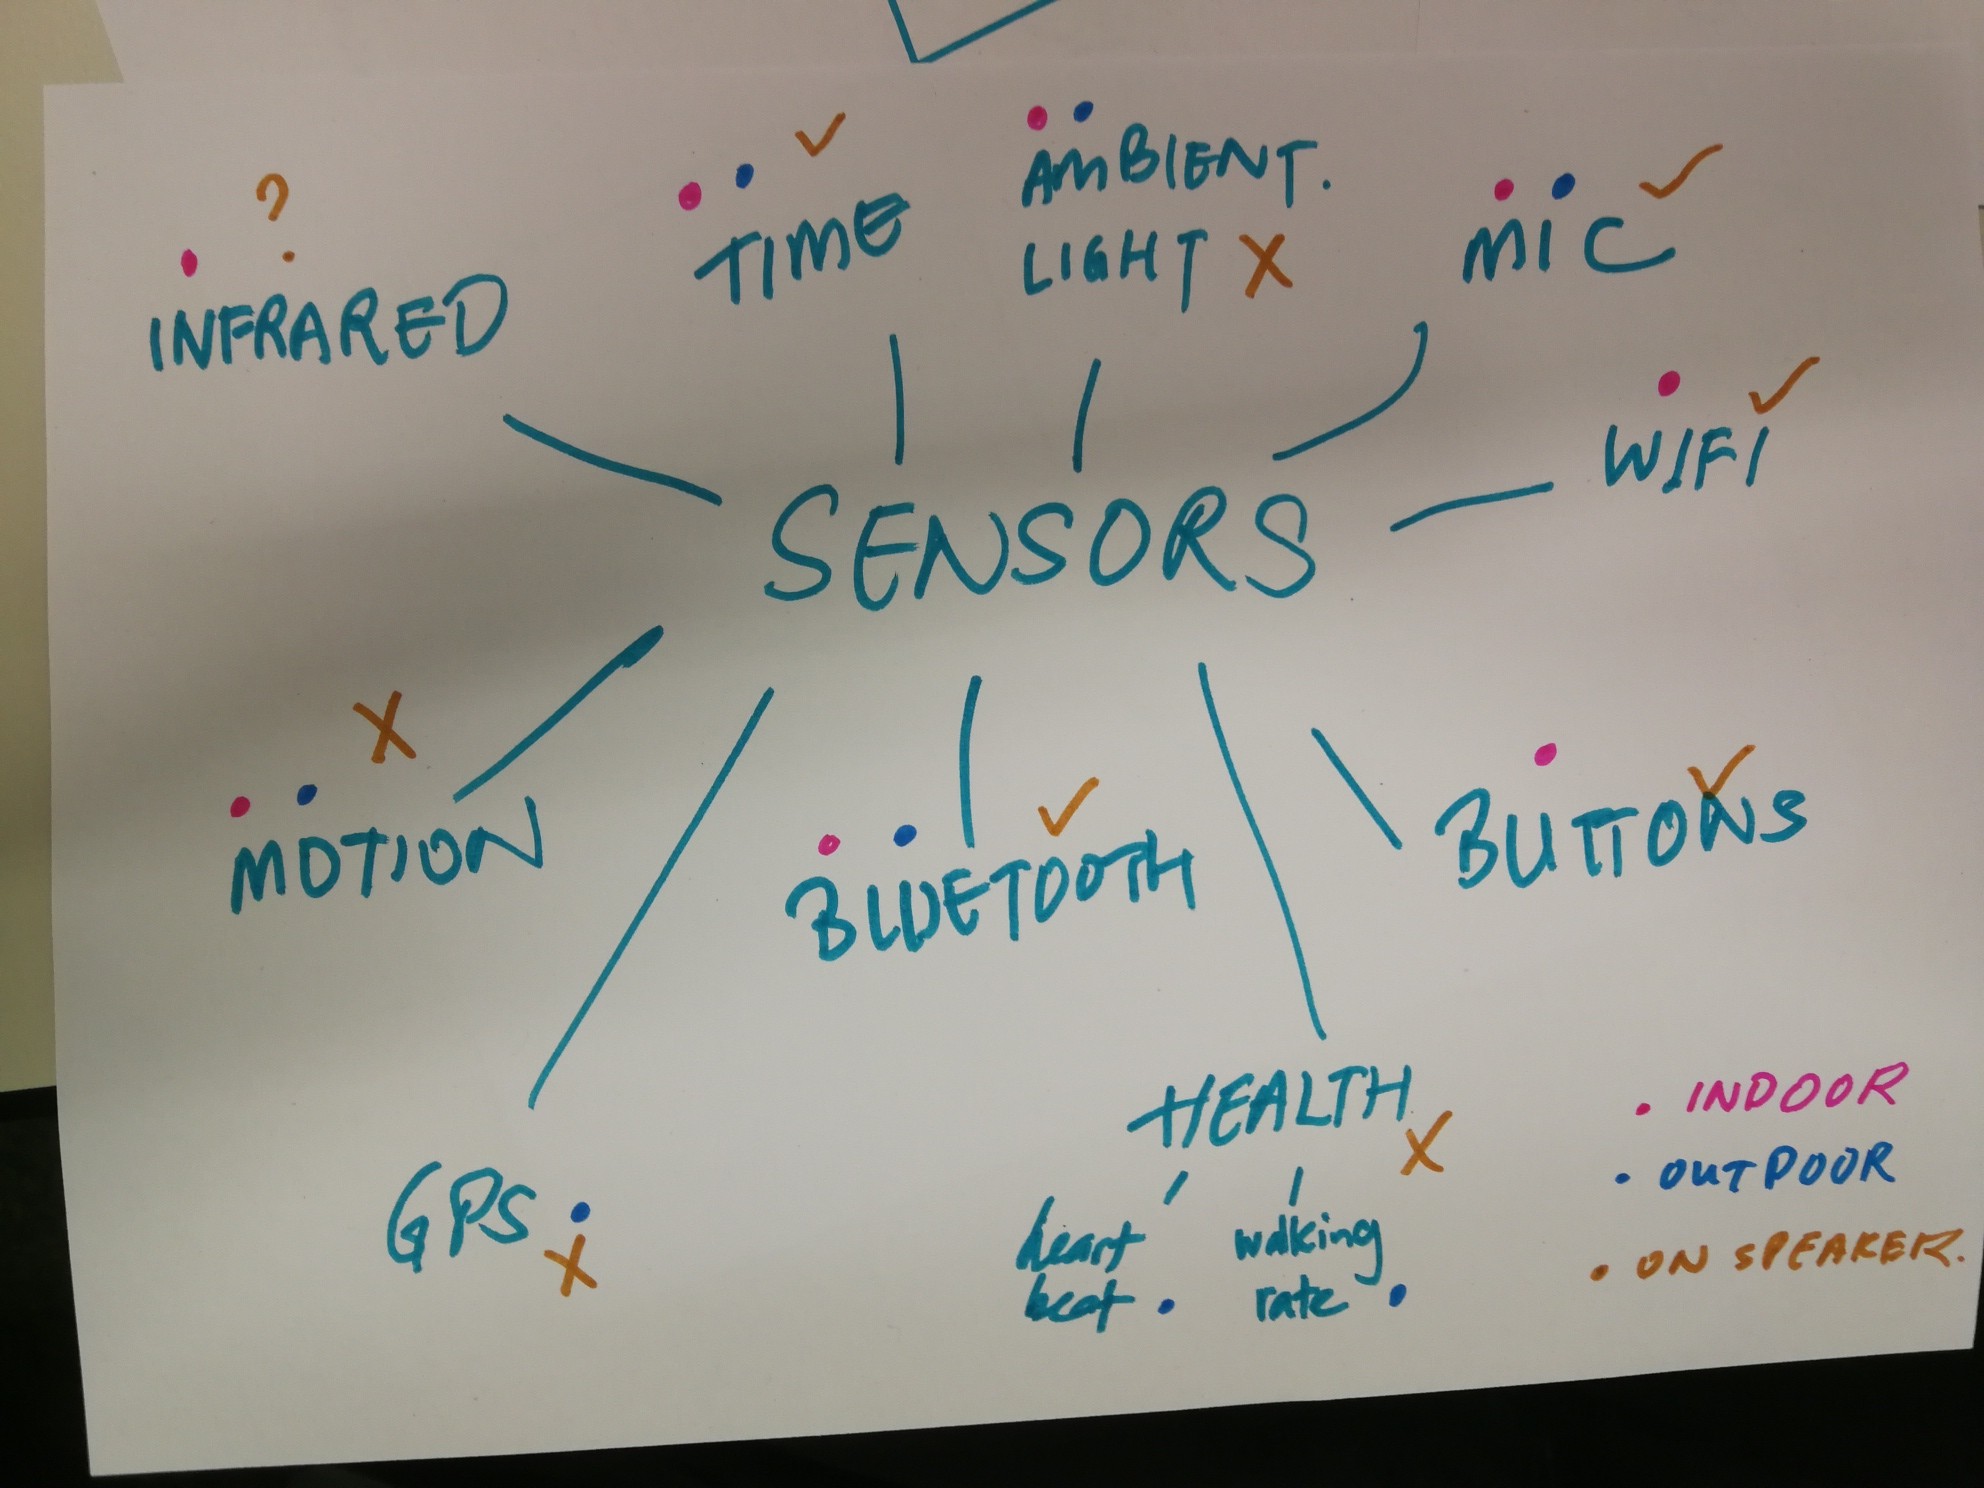 ?
INFRARED
TIME
AMBIENT.
LIGHT X
MIC
WIFI
SENSORS
X
MOTION
BLUETOOTH
BUTTONS
GPS
X
HEALTH
X
heart
beat
walking
rate
• INDOOR
• OUTDOOR
• ON SPEAKER.